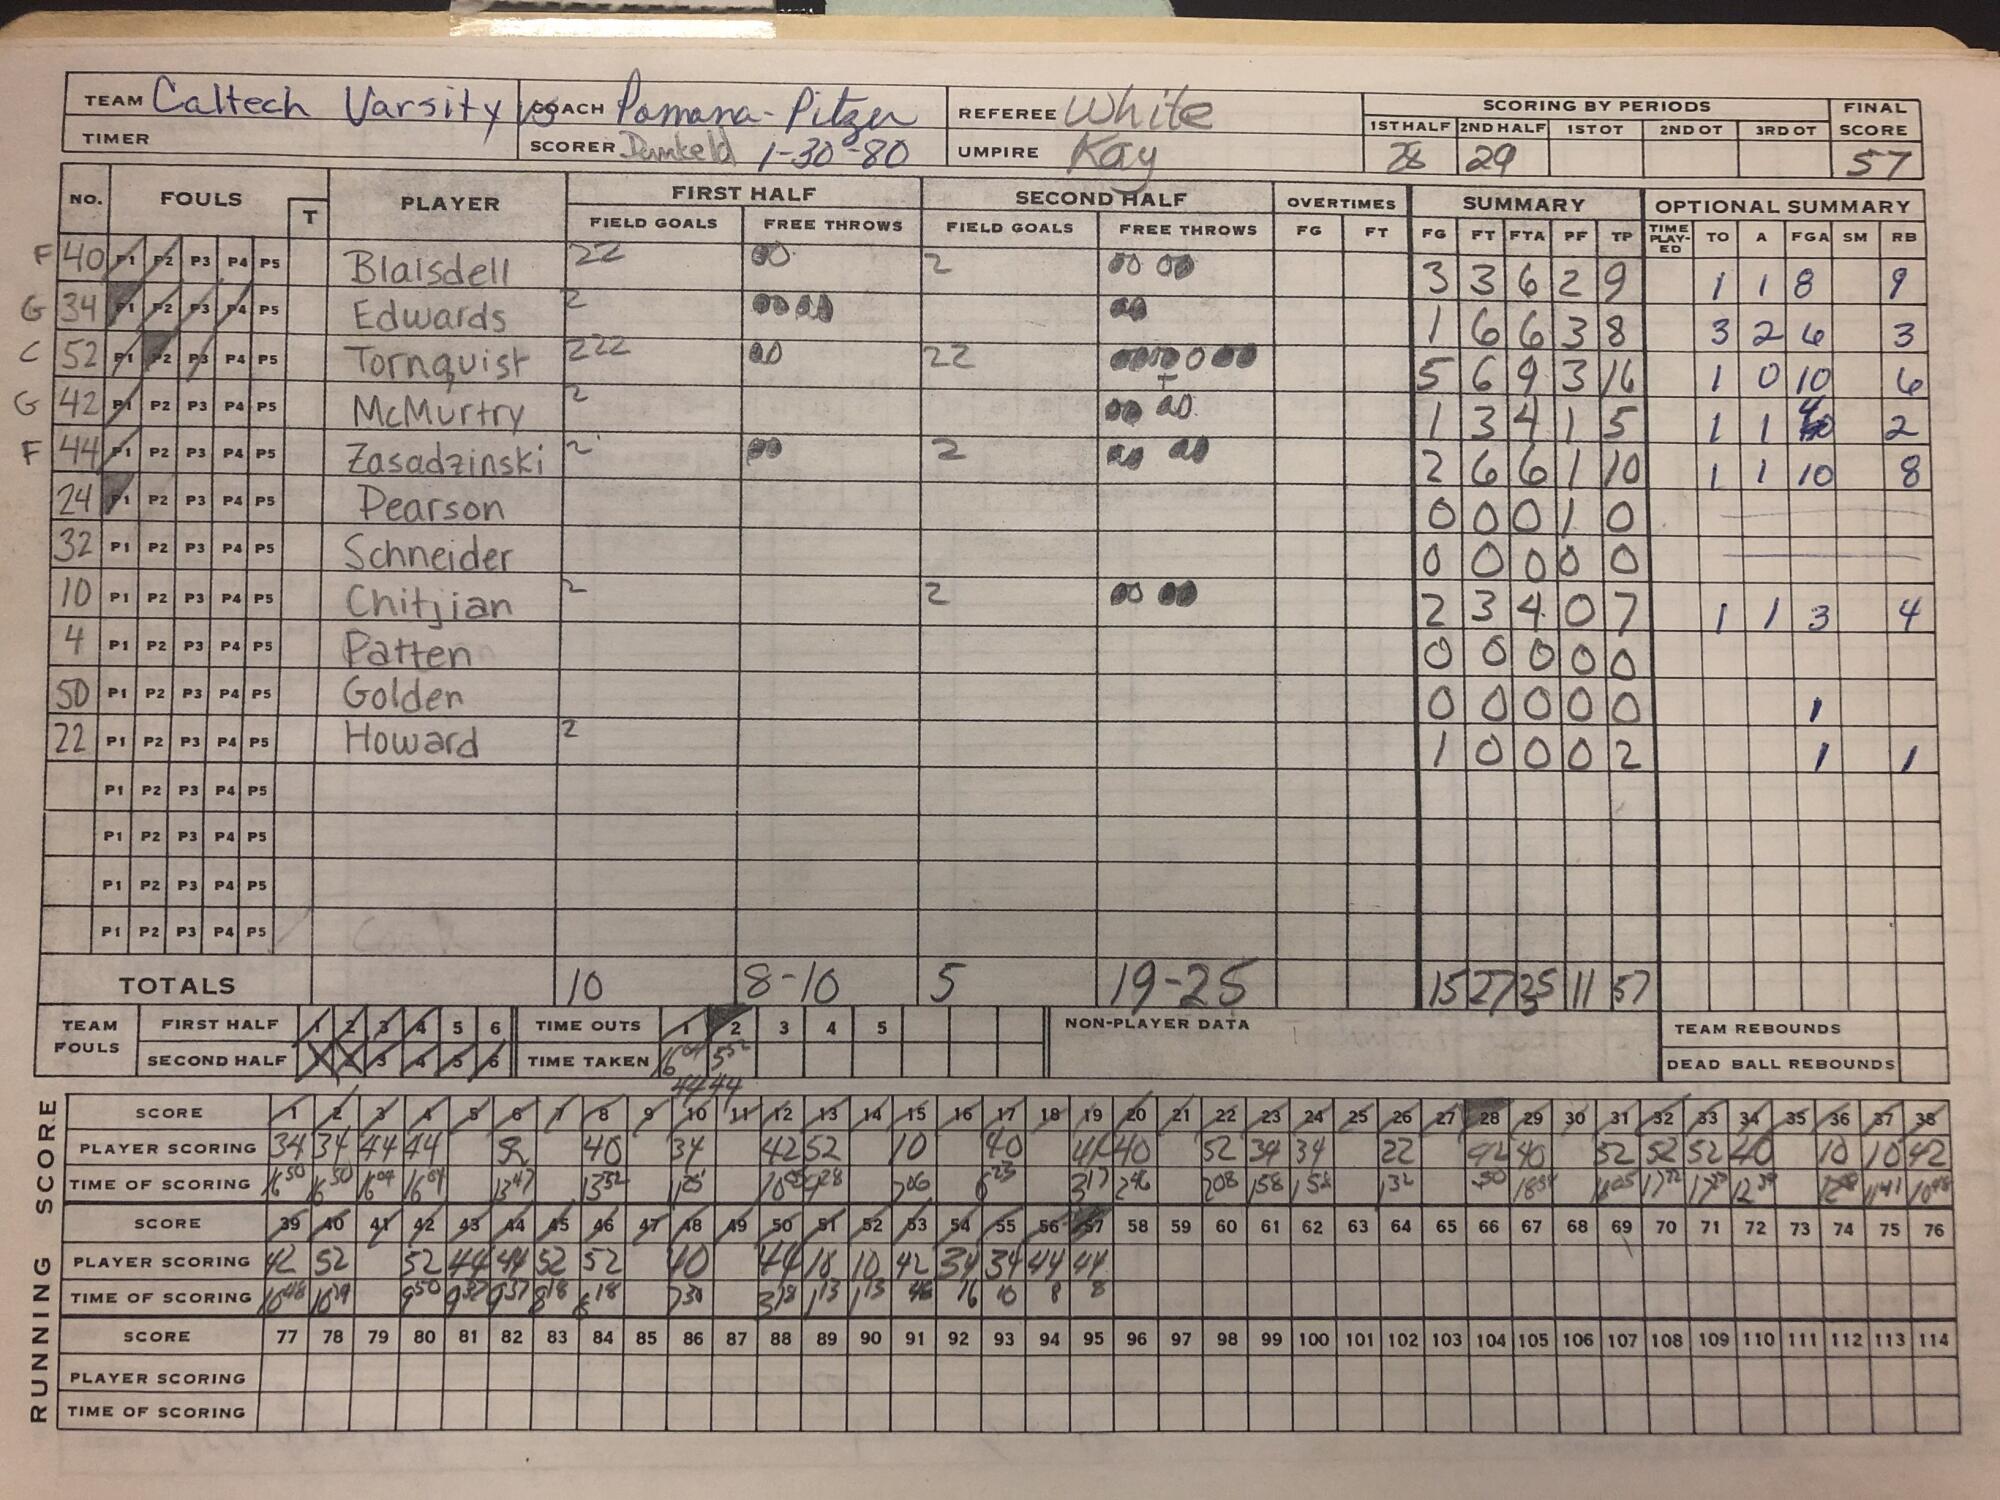 TEAM Caltech Varsity vs COACH Pomona-Pitzer REFEREE White SCORING BY PERIODS FINAL SCORE
1ST HALF 2ND HALF 1ST OT 2ND OT 3RD OT
TIMER SCORER 1-30-80 UMPIRE Kay 28 29 57
NO. FOULS T PLAYER FIRST HALF SECOND HALF OVERTIMES SUMMARY OPTIONAL SUMMARY
FIELD GOALS FREE THROWS FIELD GOALS FREE THROWS FG FT FG FT FTA PF TP TIME PLAY-ED TO A FGA SM RB
F 40 P1 P2 P3 P4 P5 Blaisdell 22 00 2 00 00 3 3 6 2 9 1 1 8 9
G 34 P1 P2 P3 P4 P5 Edwards 2 00 00 00 1 6 6 3 8 3 2 6 3
C 52 P1 P2 P3 P4 P5 Tornquist 222 00 22 00 00 0 00 5 6 9 3 16 1 0 10 6
G 42 P1 P2 P3 P4 P5 McMurtry 2 T 00 00 1 3 4 1 5 1 1 4 2
F 44 P1 P2 P3 P4 P5 Zasadzinski 2 00 2 00 00 2 6 6 1 10 1 1 10 8
24 P1 P2 P3 P4 P5 Pearson 0 0 0 1 0
32 P1 P2 P3 P4 P5 Schneider 0 0 0 0 0
10 P1 P2 P3 P4 P5 Chitjian 2 2 00 00 2 3 4 0 7 1 1 3 4
4 P1 P2 P3 P4 P5 Patten 0 0 0 0 0
50 P1 P2 P3 P4 P5 Golden 0 0 0 0 0 1
22 P1 P2 P3 P4 P5 Howard 2 1 0 0 0 2 1 1
P1 P2 P3 P4 P5
P1 P2 P3 P4 P5
P1 P2 P3 P4 P5
P1 P2 P3 P4 P5
TOTALS 10 8-10 5 19-25 15 27 35 11 57
TEAM FOULS FIRST HALF 1 2 3 4 5 6 TIME OUTS 1 2 3 4 5 NON-PLAYER DATA TEAM REBOUNDS
SECOND HALF 1 2 3 4 5 6 TIME TAKEN 16 04 5 52 DEAD BALL REBOUNDS
44 44
RUNNING SCORE
SCORE 1 2 3 4 5 6 7 8 9 10 11 12 13 14 15 16 17 18 19 20 21 22 23 24 25 26 27 28 29 30 31 32 33 34 35 36 37 38
PLAYER SCORING 34 34 44 44 52 40 34 42 52 10 40 44 40 52 34 34 22 40 52 52 52 40 10 10 42
TIME OF SCORING 16 50 16 50 16 04 16 04 13 47 13 52 9 28 7 06 6 23 3 17 2 46 2 08 1 58 1 58 1 32 50 12 39 11 41 10 48
SCORE 39 40 41 42 43 44 45 46 47 48 49 50 51 52 53 54 55 56 57 58 59 60 61 62 63 64 65 66 67 68 69 70 71 72 73 74 75 76
PLAYER SCORING 42 52 52 44 44 52 52 40 44 10 10 42 34 34 44 44
TIME OF SCORING 10 48 10 29 9 50 9 37 9 37 8 18 8 18 7 30 3 18 1 13 1 13 46 16 10 8 8
SCORE 77 78 79 80 81 82 83 84 85 86 87 88 89 90 91 92 93 94 95 96 97 98 99 100 101 102 103 104 105 106 107 108 109 110 111 112 113 114
PLAYER SCORING
TIME OF SCORING